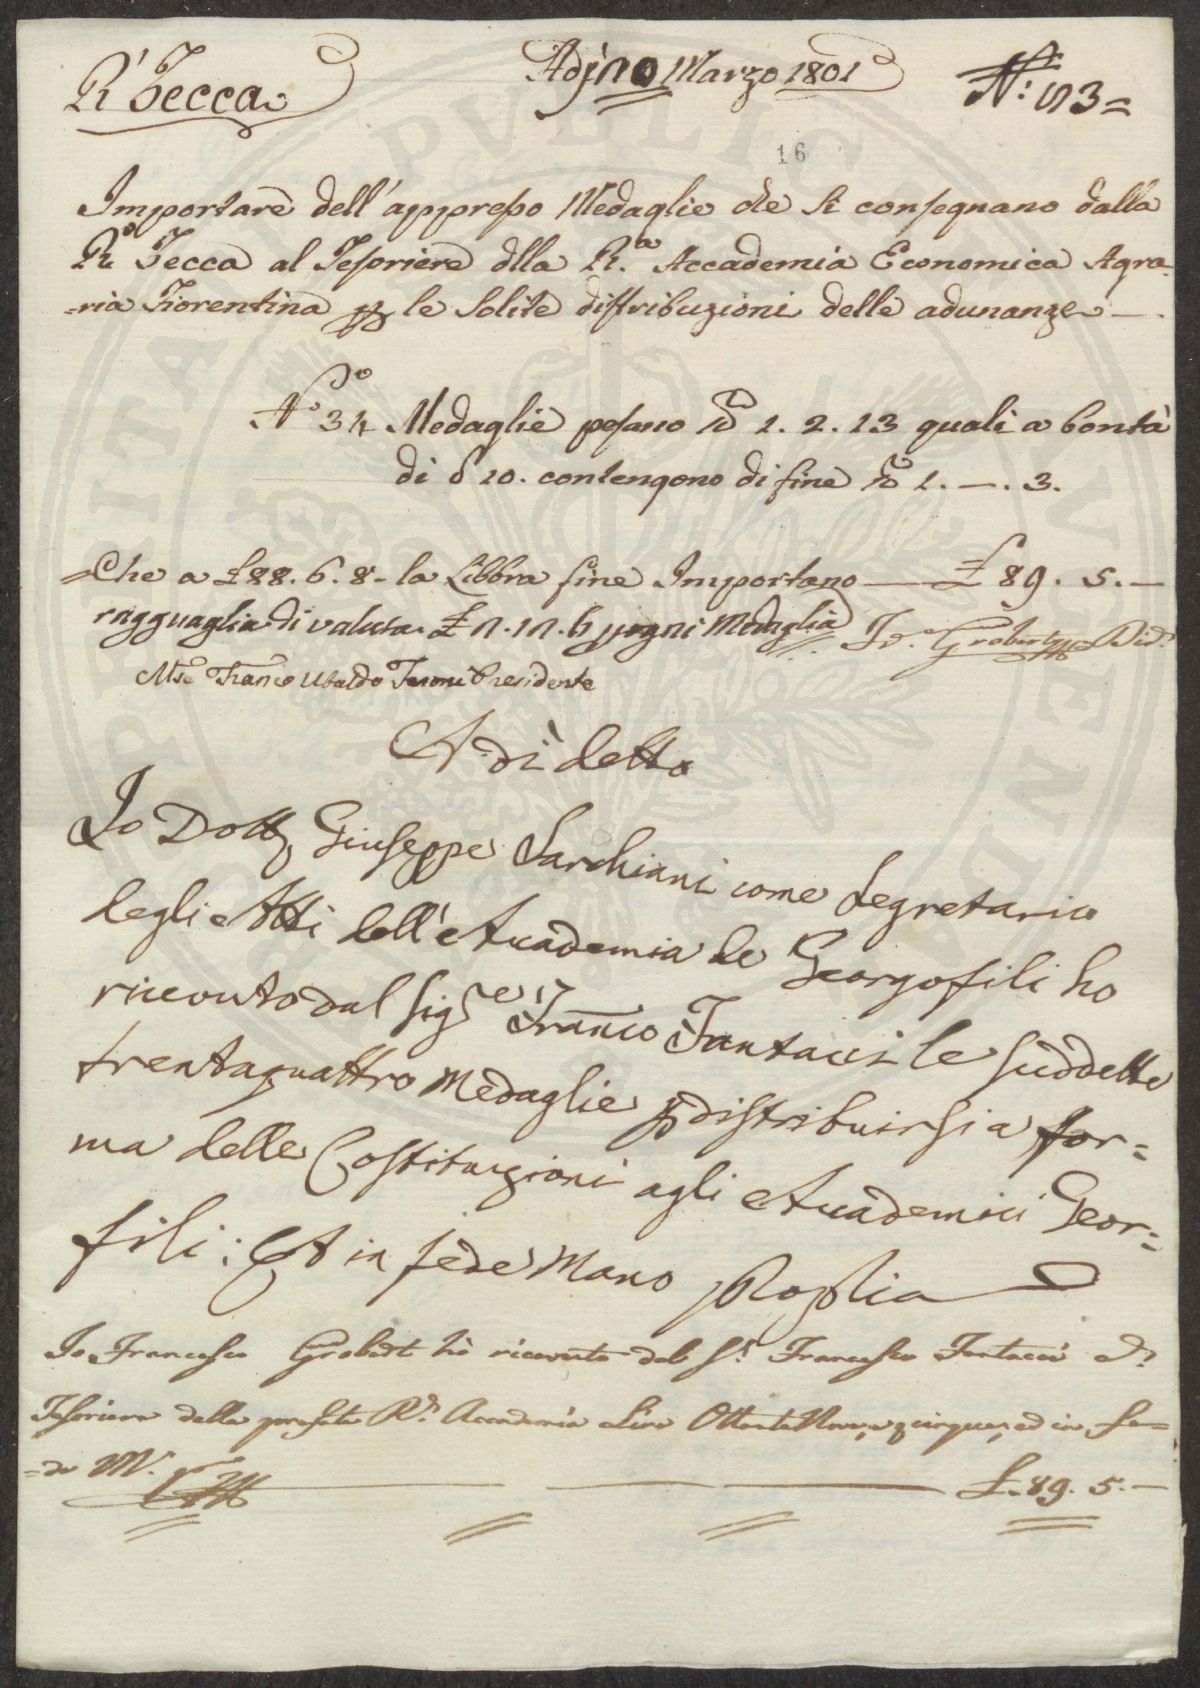 R. Zecca
Adi 10 Marzo 1801
N.° 113=
16
Importare dell'appresso Medaglie che si consegnano dalla
R.a Zecca al Tesoriere dlla R.a Accademia Economica Agra-
=ria Fiorentina p le solite distribuzioni delle adunanze —.
N.° 34 Medaglie pesano 1. 2. 13 quali a bontà
di 10. contengono di fine 1. —. 3.
=Che a £ 88. 6. 8 - la Libbra fine Importano — £ 89. 5. —
ragguaglia di valuta £ 2. 12. 6 p ogni Medaglia Fr. Grobert Dir.
Franco Ubaldo Feroni Presidente
A di detto
Io Dott. Giuseppe Sarchiani come Segretario
degli Atti dell'Accademia de Georgofili ho
ricevuto dal Sig.e Franco Fantacci le suddette
trentaquattro Medaglie p distribuirsi a for=
ma delle Costituzioni agli Accademici Geor=
fili: Et in fede Mano Propria
Io Francesco Grobert hò ricevuto dal S.r Francesco Fantacci
Tesoriere della prefata R. Accademia Lire Ottanta Nove, e cinque, ed in fe=
=de M.
£. 89. 5. —